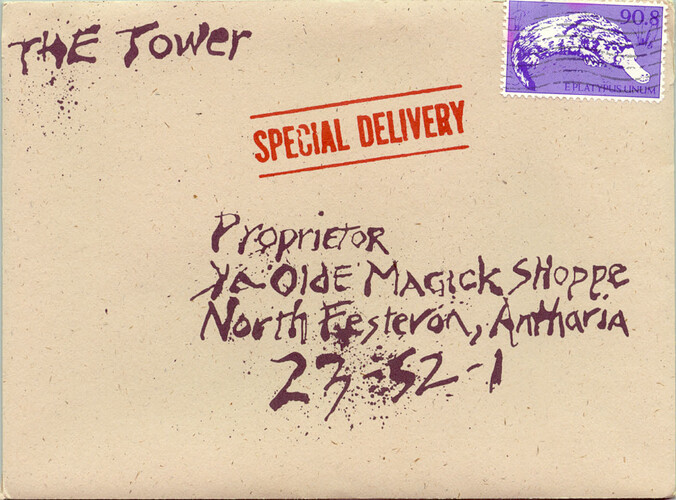 THE Tower
90.8
E PLATYPUS UNUM
SPECIAL DELIVERY
Proprietor
Ya Olde Magick Shoppe
North Festeron, Antharia
23-52-1